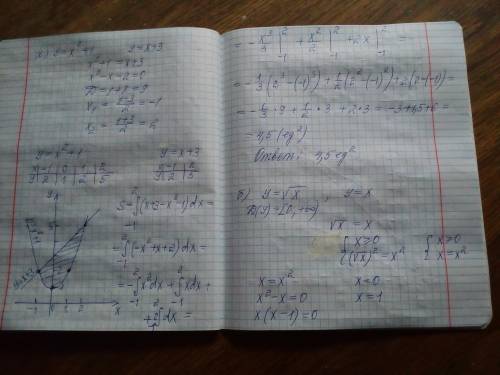 y = x² + 1 y = x + 3
x² + 1 = x + 3
x² - x - 2 = 0
D = 1 + 8 = 9
x₁ = (1-3)/2 = -1
x₂ = (1+3)/2 = 2
y = x² + 1 y = x + 3
x -1 0 1 2
y 2 1 2 5
x -1 2
y 2 5
S = ∫₋₁² (x + 3 - x² - 1) dx =
= ∫₋₁² (-x² + x + 2) dx =
= -∫₋₁² x² dx + ∫₋₁² x dx +
+ 2∫₋₁² dx =
y
-1 0 1 2 x
= -x³/3 |₋₁² + x²/2 |₋₁² + 2x |₋₁² =
= -1/3 (2³ - (-1)³) + 1/2 (2² - (-1)²) + 2(2 - (-1)) =
= -1/3 · 9 + 1/2 · 3 + 2 · 3 = -3 + 1,5 + 6 =
= 4,5 (ед²)
Ответ: 4,5 ед²
б) y = √x , y = x
D(y) = [0; +∞)
√x = x
{ x ≥ 0 { x ≥ 0
{ (√x)² = x² { x = x²
x = x² x = 0
x² - x = 0 x = 1
x(x - 1) = 0